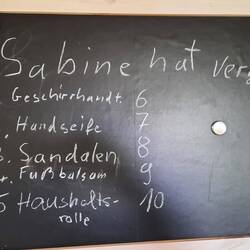 Sabine hat ver
Geschirrhandt. 6
Handseife 7
3. Sandalen 8
4. Fußbalsam 9
5 Haushalts- 10
rolle